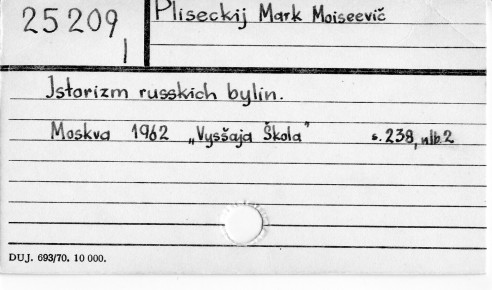 25 209
I
Pliseckij Mark Moiseevič
Istorizm russkich bylin.
Moskva 1962 „Vysšaja Škola" s. 238, nlb. 2
DUJ. 693/70. 10 000.